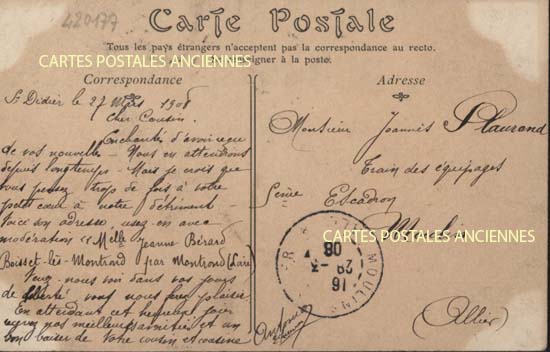 420177
Carte Postale
Tous les pays étrangers n'acceptent pas la correspondance au recto.
signer à la poste.
CARTES POSTALES ANCIENNES
Correspondance
St Didier le 27 Mars 1908
Cher Cousin
Enchantés d'avoir reçu
de vos nouvelles - Nous en attendions
depuis longtemps - Mais je crois que
vous pensez trop de fois à votre
petit cœur à notre détriment -
Voici son adresse, usez-en avec
modération « Melle Jeanne Bérard
Boisset-lès-Montrond par Montrond (Loire)
Venez nous voir dans vos jours
de liberté vous nous ferez plaisir.
En attendant cet heureux jour
recevez nos meilleures amitiés et un
bon baiser de votre cousin et cousine
Antonia
Adresse
Monsieur Joannis
Train des équipages
Escadron
Moulin
CARTES POSTALES ANCIENNES
Allier
MOULIN
16
29 - 3
08